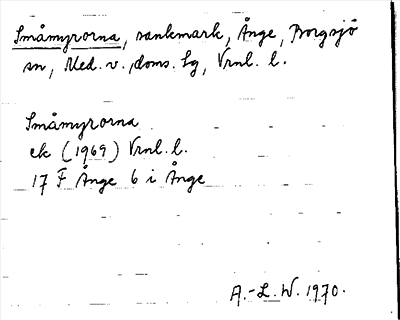 Småmyrorna, sankmark, Ånge, Borgsjö
sn, Med. v. doms. Lg, Vrnl. l.
Småmyrorna
ek (1969) Vrnl. l.
17 F Ånge 6 i Ånge
A.-L. W. 1970.